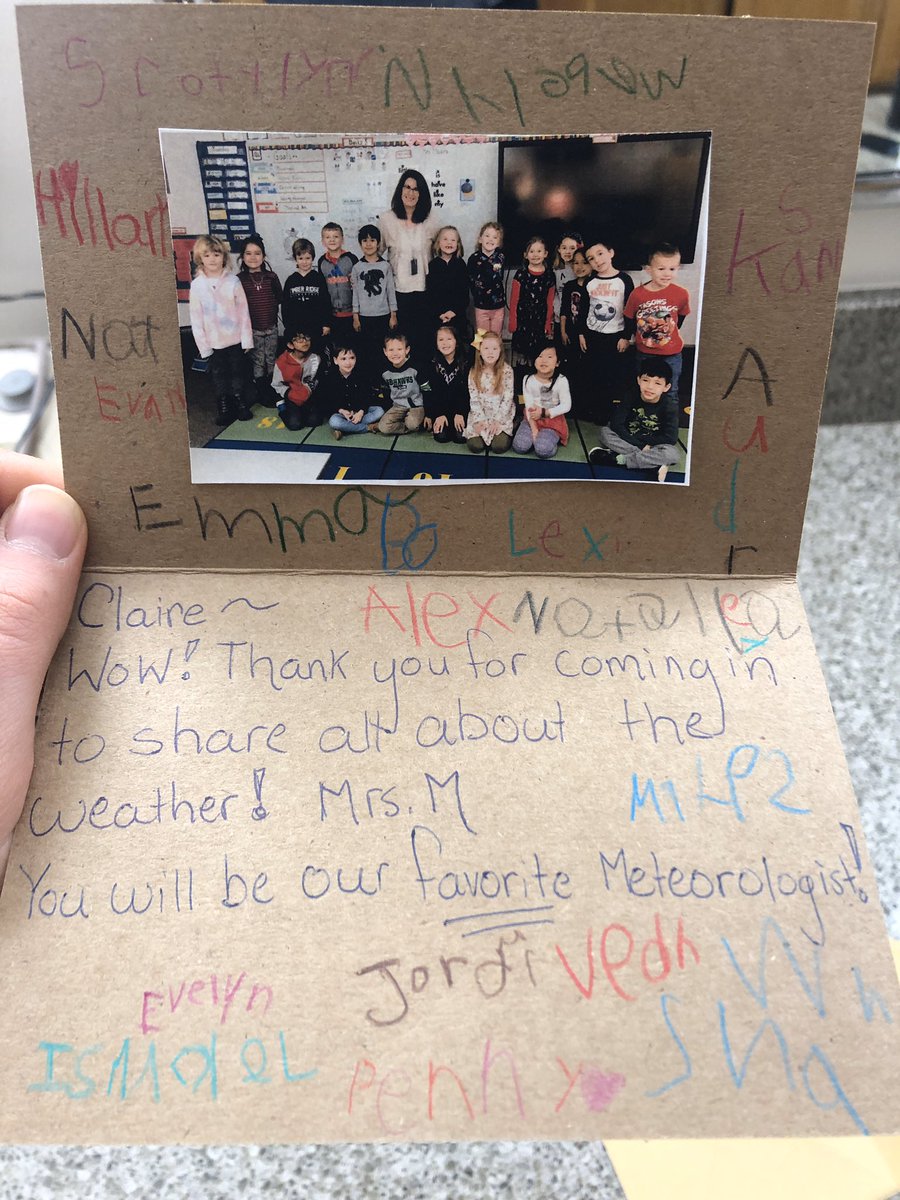 Scottlyn
Hillary
Nat
Evan
Kam
Audr
Emma
Bo
Lexi
Claire ~
Alex
Natalea
Wow! Thank you for coming in
to share all about the
weather! Mrs. M
You will be our favorite Meteorologist!
Jordi
Vedh
Evelyn
ISMaeL
Penny